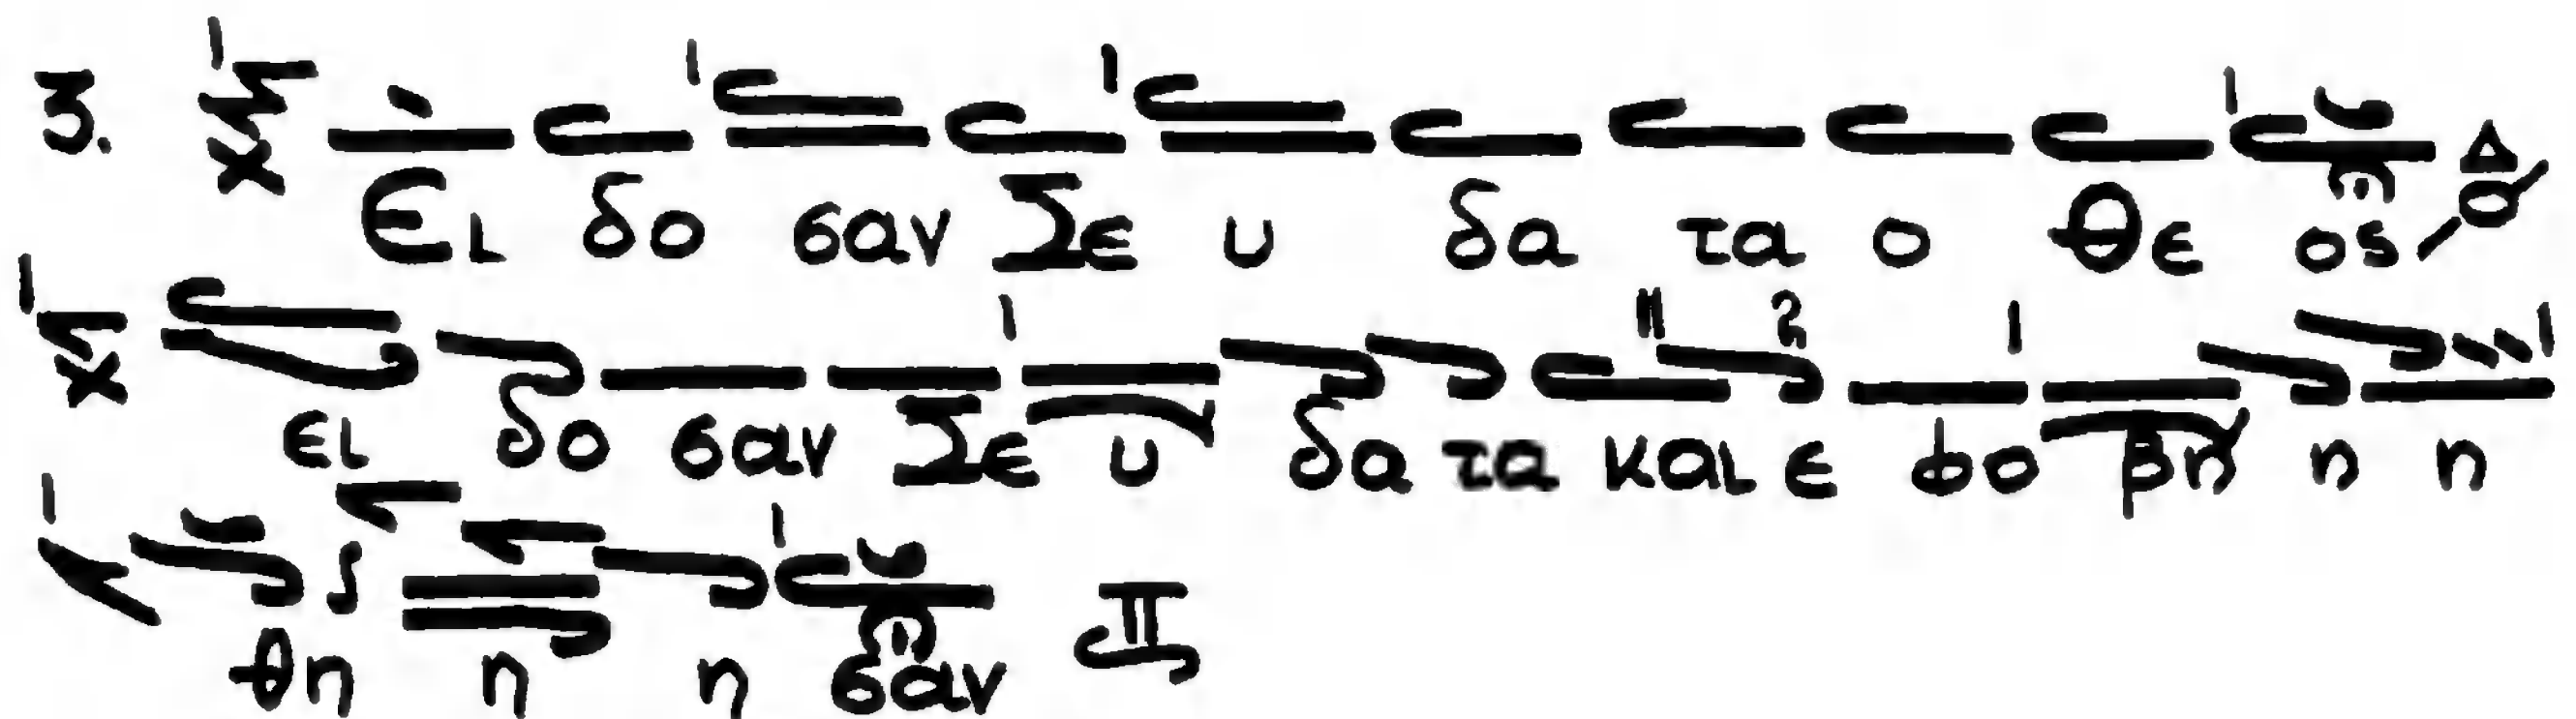 3. Ει δο σαν Σε υ δα τα ο Θε ος
ει δο σαν Σε υ δα τα και ε φο βη η η
θη η η σαν